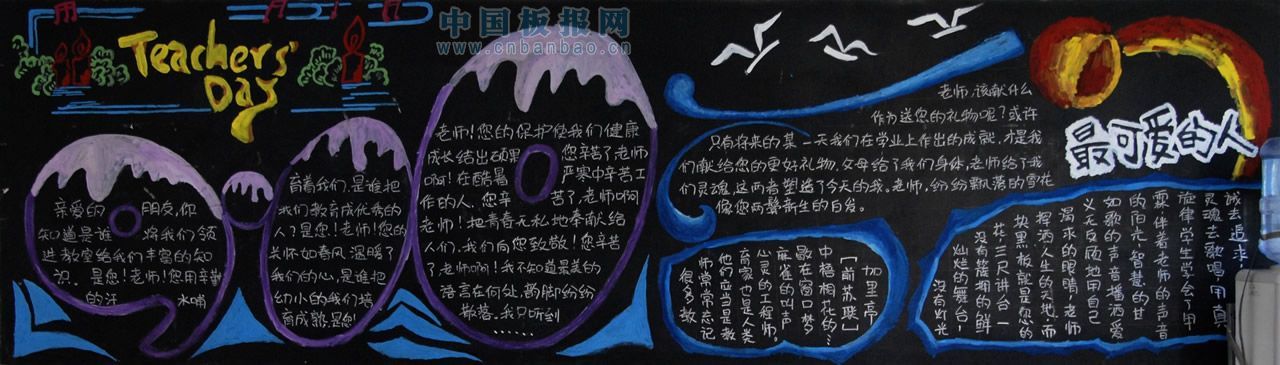 中国板报网
www.cnbanbao.cn
Teachers'
Day
亲爱的 朋友,你
知道是谁 将我们领
进教室给我们丰富的知
识。是您!老师!您用辛勤
的汗 水哺
育着我们,是谁把
我们教育成优秀的
人?是您!老师!您的
关怀如春风温暖了
我们的心,是谁把
幼小的我们培
育成熟,是您!
老师!您的保护使我们健康
成长结出硕果 您辛苦了老师
啊!在酷暑 严寒中辛苦工
作的人,您辛 苦了,老师啊
老师!把青春无私地奉献给
人们,我们向您致敬!您辛苦
了老师啊!我不知道最美的
语言在何处,
散落。我只听到
……
老师,该献什么
作为送您的礼物呢?或许
只有将来的某一天我们在学业上作出的成就,才是我
们献给您的更好礼物,父母给了我们身体,老师给于我
们灵魂,这两者塑造了今天的我。老师,纷纷飘落的雪花
像您两鬓新生的白发。
最可爱的人
加里宁
[前苏联]
中梧桐花的…
敲在窗口梦
麻雀的叫声
心灵的工程师。
育家也是人类
他们应当是教
师常常忘记
很多教
诚去追求!
灵魂去歌唱用真
旋律学生学会了用
票伴着老师的声音
的阳光,智慧的甘
如歌的声音播洒爱
义无反顾地用自己
渴求的眼睛!老师
挥洒人生的天地,而
块黑板就是您的
花,三尺讲台一
没有簇拥的鲜
灿烂的舞台!
没有灯光